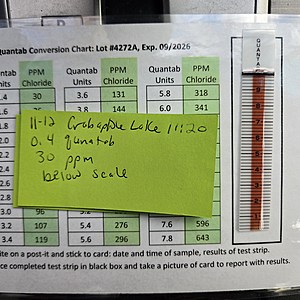 Quantab Conversion Chart: Lot #4272A, Exp. 09/2026
PPM Quantab PPM Quantab PPM
Units Chloride Units Chloride Units Chloride
.4 30 3.6 131 5.8 318
3.8 144 6.0 341
11-12 Crabapple Lake 11:20
0.4 qunatab
30 ppm
below scale
3.0 96
3.2 107 5.4 276 7.6 593
3.4 119 5.6 296 7.8 643
ite on a post-it and stick to card: date and time of sample, results of test strip.
ce completed test strip in black box and take a picture of card to report with results.
QUANTAB
9
8
7
6
5
4
3
2
1